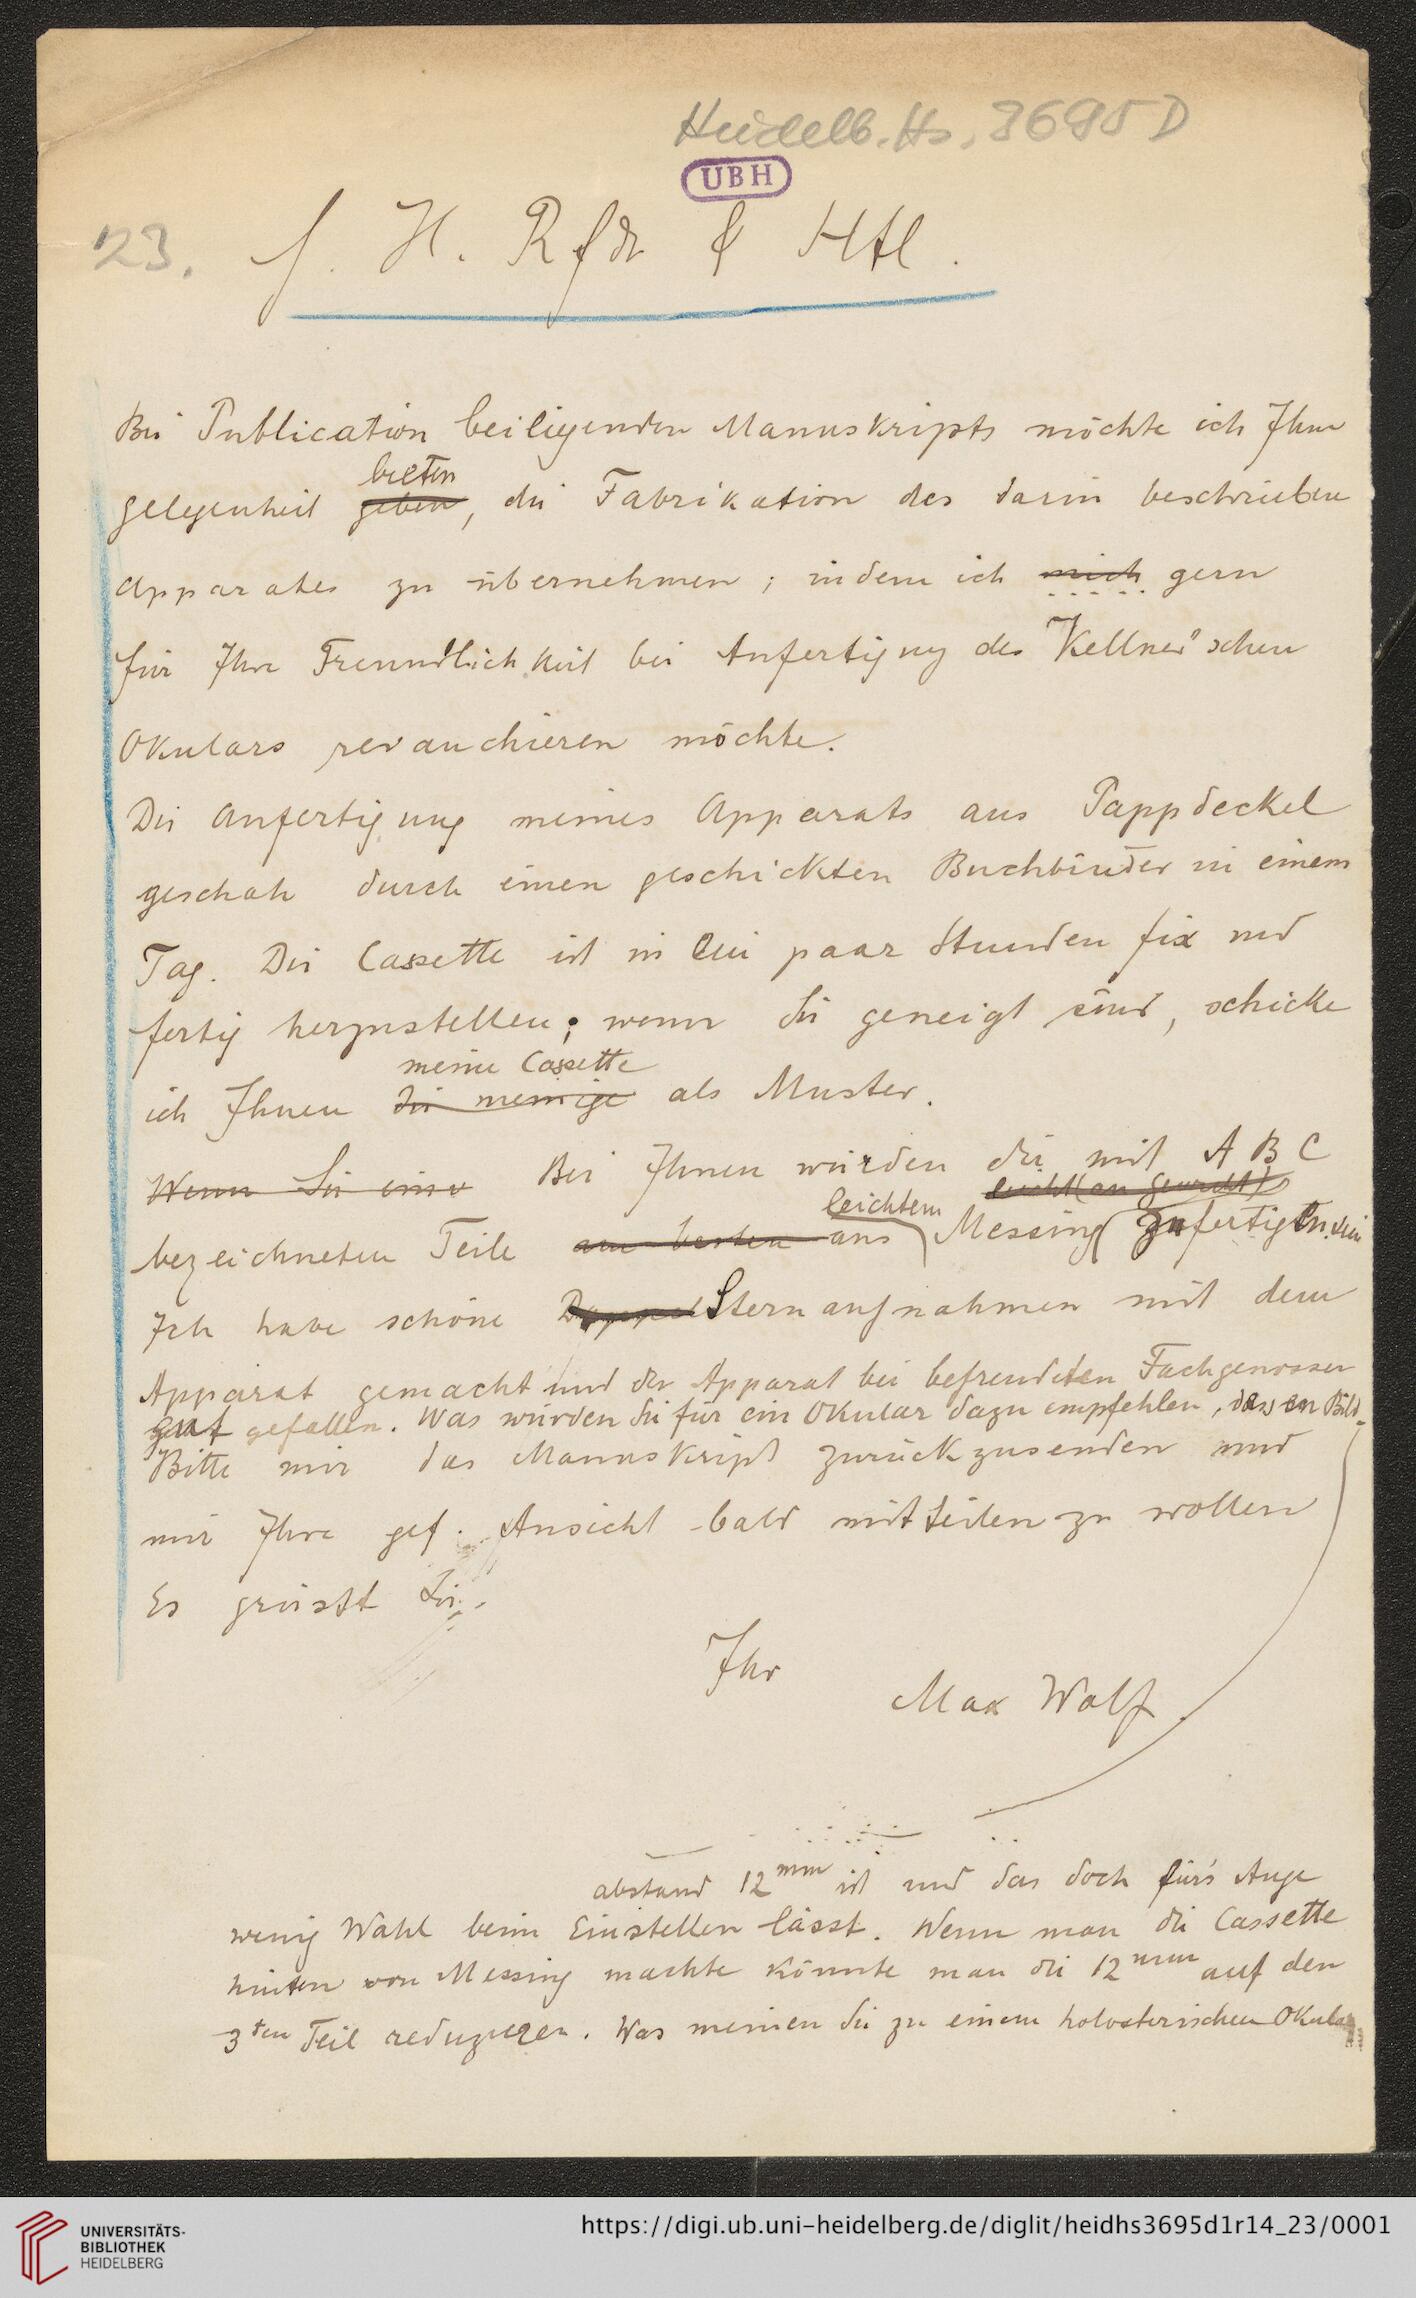 Heidelb. Hs. 3695 D
UBH
23.
f. H. Rfdr & Htl.
Bei Publication beiligenden Manuskripts möchte ich Ihnen
bieten
gelegenheit geben, die Fabrikation des darin beschrieben
Apparates zu übernehmen; indem ich mich gern
für Ihre Freundlichkeit bei Anfertigung des "Kellner"schen
Okulars revanchieren möchte.
Die Anfertigung meines Apparats aus Pappdeckel
geschah durch einen geschickten Buchbinder in einem
Tag. Die Cassette ist in ein paar Stunden fix und
fertig herzustellen; wenn Sie geneigt sind, schicke
meine Cassette
ich Ihnen die meinige als Muster.
Wenn Sie eine Bei Ihnen würden die mit A B C
leichtem
bezeichneten Teile am besten aus Messing zu fertigen sein
Ich habe schöne Doppel Sternaufnahmen mit dem
Apparat gemacht und der Apparat bei befreundeten Fachgenossen
gut gefallen. Was würden Sie für ein Okular dazu empfehlen, dass en Bild-
Bitte mir das Manuskript zurückzusenden und
mir Ihre gef. Ansicht bald mitteilen zu wollen
Es grüsst Sie
Ihr
Max Wolf.
abstand 12 mm ist und das doch für's Auge
wenig Wahl beim Einstellen lässt. Wenn man die Cassette
hinten von Messing machte könnte man die 12 mm auf den
3ten Teil reduzieren. Was meinen Sie zu einem holosterischen Okular
UNIVERSITÄTS-
BIBLIOTHEK
HEIDELBERG
https://digi.ub.uni-heidelberg.de/diglit/heidhs3695d1r14_23/0001